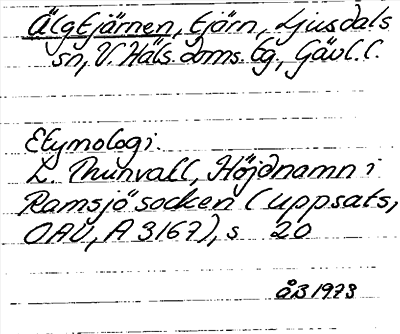 Älgtjärnen, tjärn, Ljusdals
sn, V. Häls. doms. tg., Gävl. l.
Etymologi:
L. Thunvall, Höjdnamn i
Ramsjö socken (uppsats,
OAU, A 3167), s 20
åB 1973